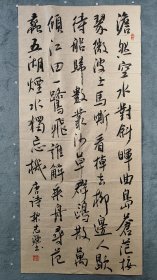 澹然空水對斜暉曲島蒼茫接
翠微波上馬嘶看棹去柳邊人歇
待船歸數叢沙草群鷗散萬
頃江田一鷺飛誰解乘舟尋范
蠡五湖煙水獨忘機 唐詩